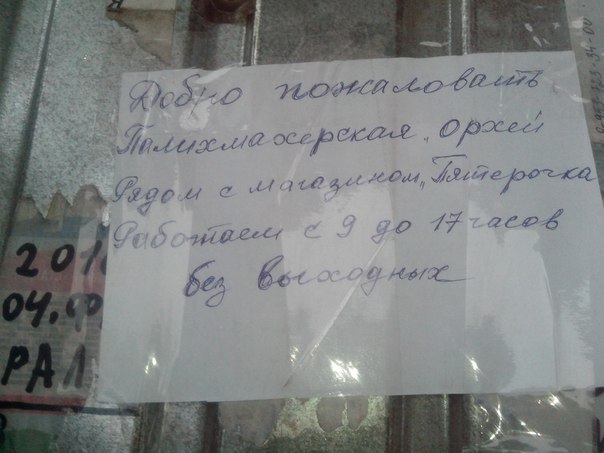 Добро пожаловать
Палихмахерская „Орхей
Рядом с магазином „Пятерочка
Работаем с 9 до 17 часов
без выходных
201
04.Ф
РАЛ